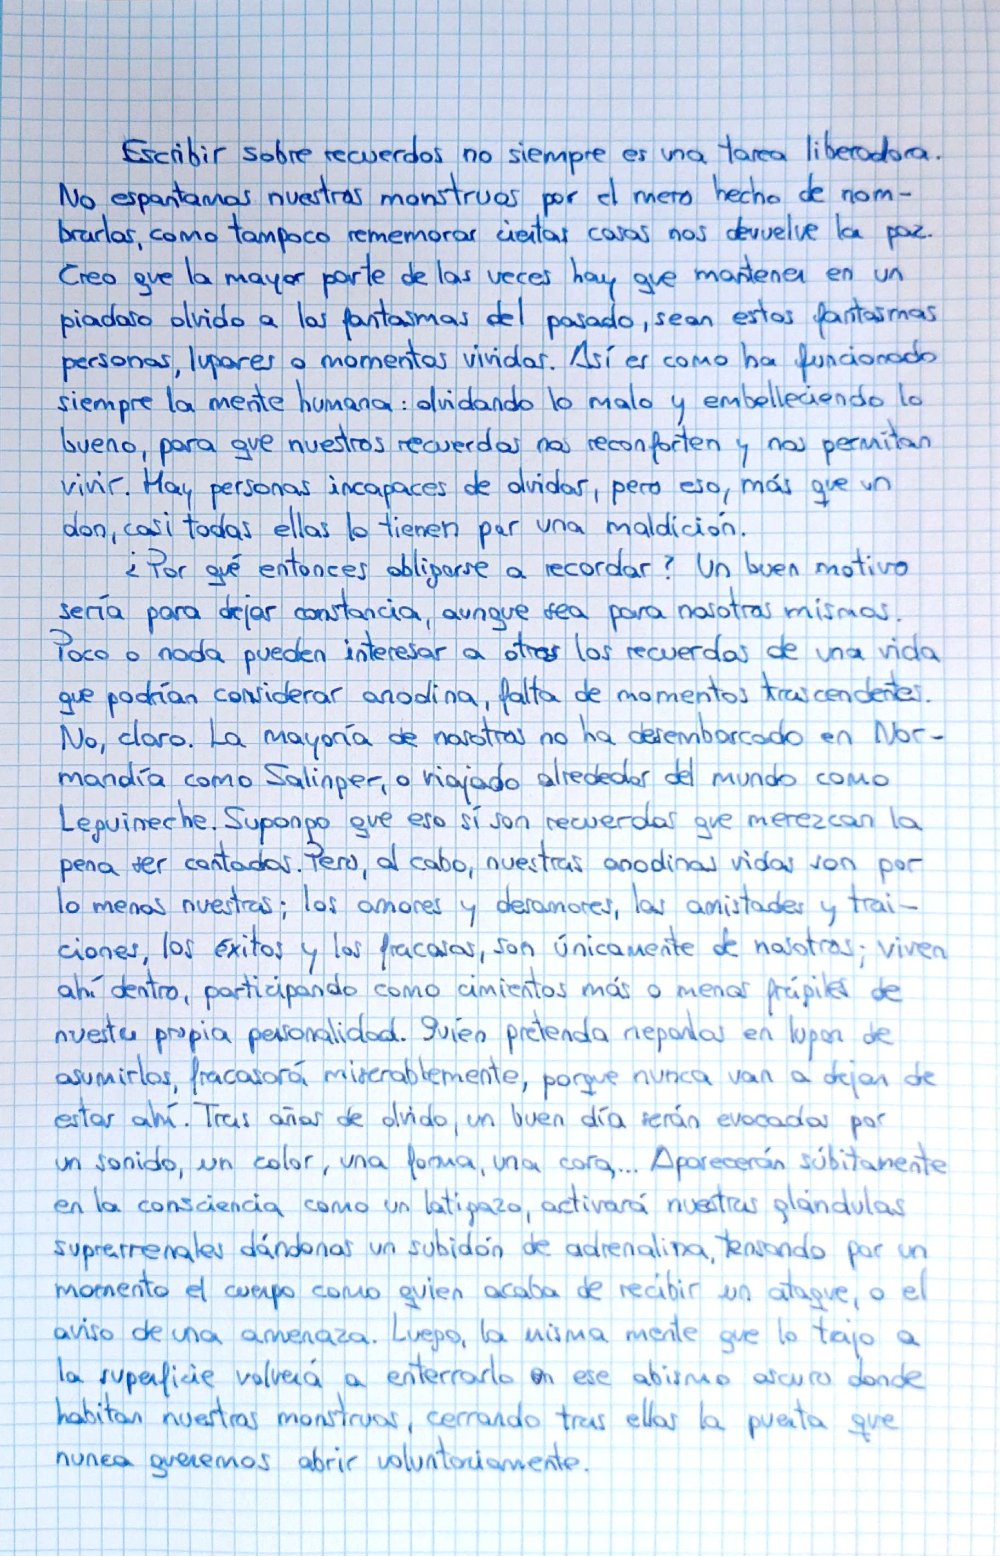 Escribir sobre recuerdos no siempre es una tarea liberadora.
No espantamos nuestros monstruos por el mero hecho de nom-
brarlos, como tampoco rememorar ciertas cosas nos devuelve la paz.
Creo que la mayor parte de las veces hay que mantener en un
piadoso olvido a los fantasmas del pasado, sean estos fantasmas
personas, lugares o momentos vividos. Así es como ha funcionado
siempre la mente humana: olvidando lo malo y embelleciendo lo
bueno, para que nuestros recuerdos nos reconforten y nos permitan
vivir. Hay personas incapaces de olvidar, pero eso, más que un
don, casi todas ellas lo tienen por una maldición.
¿Por qué entonces obligarse a recordar? Un buen motivo
sería para dejar constancia, aunque sea para nosotros mismos.
Poco o nada pueden interesar a otros los recuerdos de una vida
que podrían considerar anodina, falta de momentos trascendentes.
No, claro. La mayoría de nosotros no ha desembarcado en Nor-
mandía como Salinger, o viajado alrededor del mundo como
Leguineche. Supongo que eso sí son recuerdos que merezcan la
pena ser contados. Pero, al cabo, nuestras anodinas vidas son por
lo menos nuestras; los amores y desamores, las amistades y trai-
ciones, los éxitos y los fracasos, son únicamente de nosotros; viven
ahí dentro, participando como cimientos más o menos frágiles de
nuestra propia personalidad. Quien pretenda negarlos en lugar de
asumirlos, fracasará miserablemente, porque nunca van a dejar de
estar ahí. Tras años de olvido, un buen día serán evocados por
un sonido, un color, una forma, una cara... Aparecerán súbitamente
en la consciencia como un latigazo, activará nuestras glándulas
suprarrenales dándonos un subidón de adrenalina, tensando por un
momento el cuerpo como quien acaba de recibir un ataque, o el
aviso de una amenaza. Luego, la misma mente que lo trajo a
la superficie volverá a enterrarlo en ese abismo oscuro donde
habitan nuestros monstruos, cerrando tras ellos la puerta que
nunca queremos abrir voluntariamente.